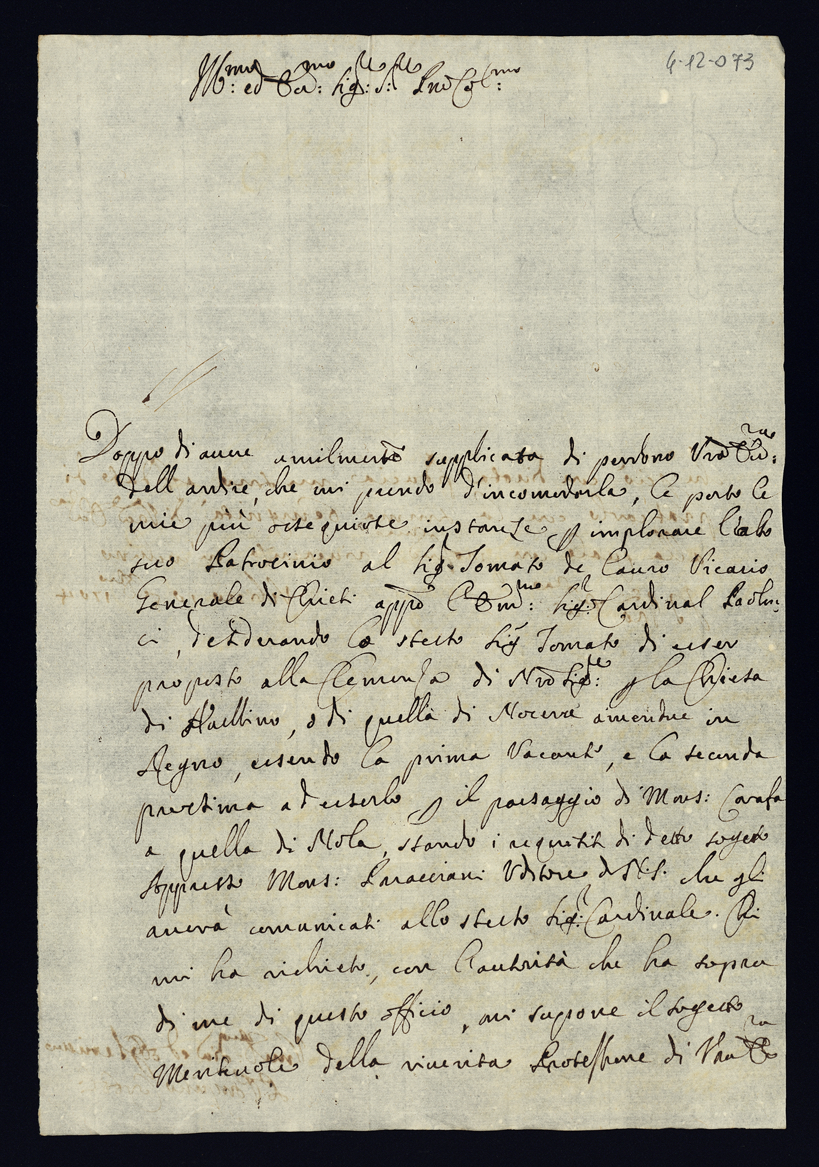 6-12-073
Ill:mo ed Ecc:mo Sig:re S:re Pne Col:mo
Doppo di avere umilmente supplicata di perdono Vra Ecc:za
dell ardire, che mi prendo d'incomodarla, le porto le
mie più ossequiose instanze p implorare l'alto
suo Patrocinio al Sig:r Tomaso de Cauro Vicario
Generale di Chieti appo l'Em:mo Sig:r Cardinal Paoluc
ci, desiderando lo stesso Sig:r Tomaso di esser
proposto alla Clemenza di Nro Sig:re p la Chiesa
di Avellino, o di quella di Nocera amendue in
Regno, essendo la prima Vacante, e la seconda
prossima ad esserlo p il passaggio di Mons: Carafa
a quella di Nola, stando i requisiti di detto sogetto
Appresso Mons: Uditore di S.S. che gli
averà comunicati allo stesso Sig:r Cardinale. Chi
mi ha richiesto, con l'autorità che ha sopra
di me di questo officio, mi supone il sogetto
Meritevole della riverita Protessione di Vra Ecc:za